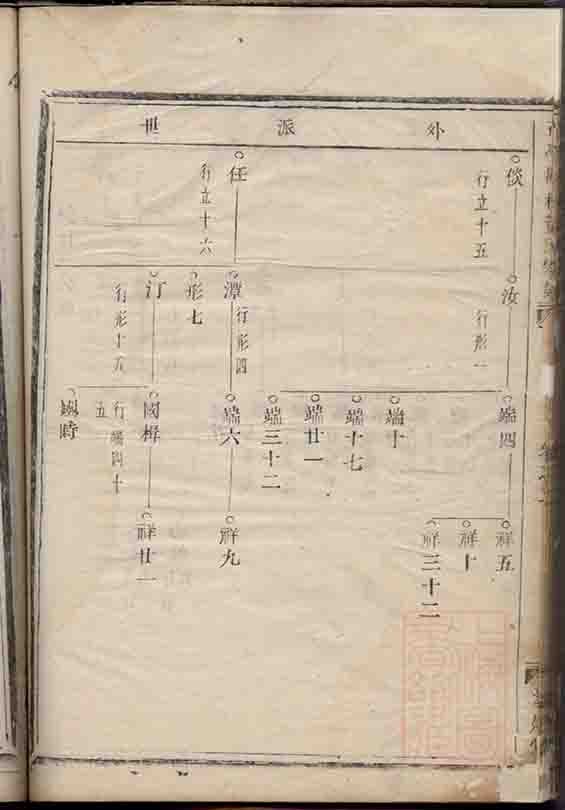 外派世
倓
行立十五
汝
行形一
端四
祥五
祥十
祥三十二
端十
端十七
端廿一
端三十二
任
行立十六
潭
行形四
端六
祥九
形七
汀
行形十五
國楫
行端四十五
祥廿一
國時